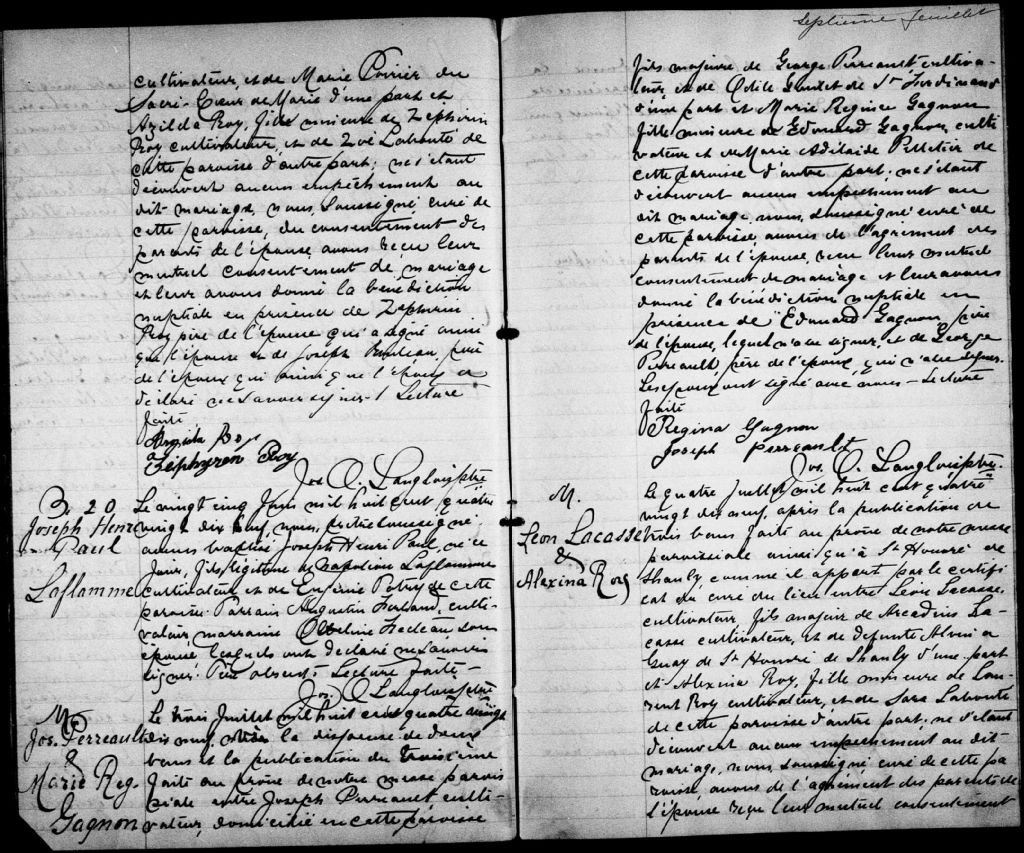 cultivateur, et de Marie Poirier du
Sacré-Cœur de Marie d'une part et
Azilda Roy, fille mineure de Zéphirin
Roy cultivateur, et de Zoé Labonté de
cette paroisse d'autre part; ne s'étant
découvert aucun empêchement au
dit mariage, nous, soussigné curé de
cette paroisse, du consentement des
parents de l'épouse, avons reçu leur
mutuel consentement de mariage
et leur avons donné la bénédiction
nuptiale en présence de Zéphirin
Roy père de l'épouse qui a signé ainsi
que l'épouse et de Joseph père
de l'époux qui ainsi que l'époux a
déclaré ne savoir signer. Lecture
faite
Roy
Zéphyren Roy
Jos. O. Langlois, ptre
B. 20
Joseph Henri
Paul
Laflamme
Le vingt cinq Juin mil huit cent quatre
vingt dix neuf, nous, prêtre soussigné,
avons baptisé Joseph Henri Paul, né ce
jour, fils légitime de Napoléon Laflamme
cultivateur et de Eugénie de cette
paroisse. Parrain Augustin culti-
vateur, marraine Nadeau son
épouse, lesquels ont déclaré ne savoir
signer. Père absent. Lecture faite.
Jos. O. Langlois, ptre
M.
Jos. Perreault
&
Marie Reg.
Gagnon
Le trois Juillet mil huit cent quatre vingt
dix neuf, la dispense de deux
bans et la publication du troisième
faite au prône de notre messe parois
siale entre Joseph Perreault culti-
vateur, domicilié en cette paroisse
Septième feuillet
fils majeure de George Perreault cultiva-
teur, et de Odile Goudet de St Ferdinand
d'une part et Marie Régina Gagnon
fille mineure de Edouard Gagnon, culti
vateur et de Marie Adélaide Pelletier de
cette paroisse d'autre part; ne s'étant
découvert aucun empêchement au
dit mariage, nous, soussigné curé de
cette paroisse, avons de l'agrément des
parents de l'épouse, reçu leur mutuel
consentement de mariage et leur avons
donné la bénédiction nuptiale en
présence de Edouard Gagnon, père
de l'épouse, lequel n'a su signer, et de George
Perreault, père de l'époux, qui n'a su signer.
Les époux ont signé avec nous - Lecture
faite
Régina Gagnon
Joseph Perreault
Jos. O. Langlois, ptre.
M.
Léon Lacasse
&
Alexina Roy
Le quatre Juillet mil huit cent quatre
vingt dix neuf, après la publication de
trois bans faite au prône de notre messe
paroissiale ainsi qu'à St Honoré de
Shanly comme il appert par le certifi
cat du curé du lieu entre Léon Lacasse,
cultivateur, fils majeur de Arcadius La-
casse cultivateur, et de défunte
Guay de St Honoré de Shanly d'une part
et Alexina Roy, fille mineure de Lau-
rent Roy cultivateur, et de Sara Labonté
de cette paroisse d'autre part; ne s'étant
découvert aucun empêchement au dit
mariage, nous, soussigné curé de cette pa
roisse, avons de l'agrément des parents de
l'épouse reçu leur mutuel consentement